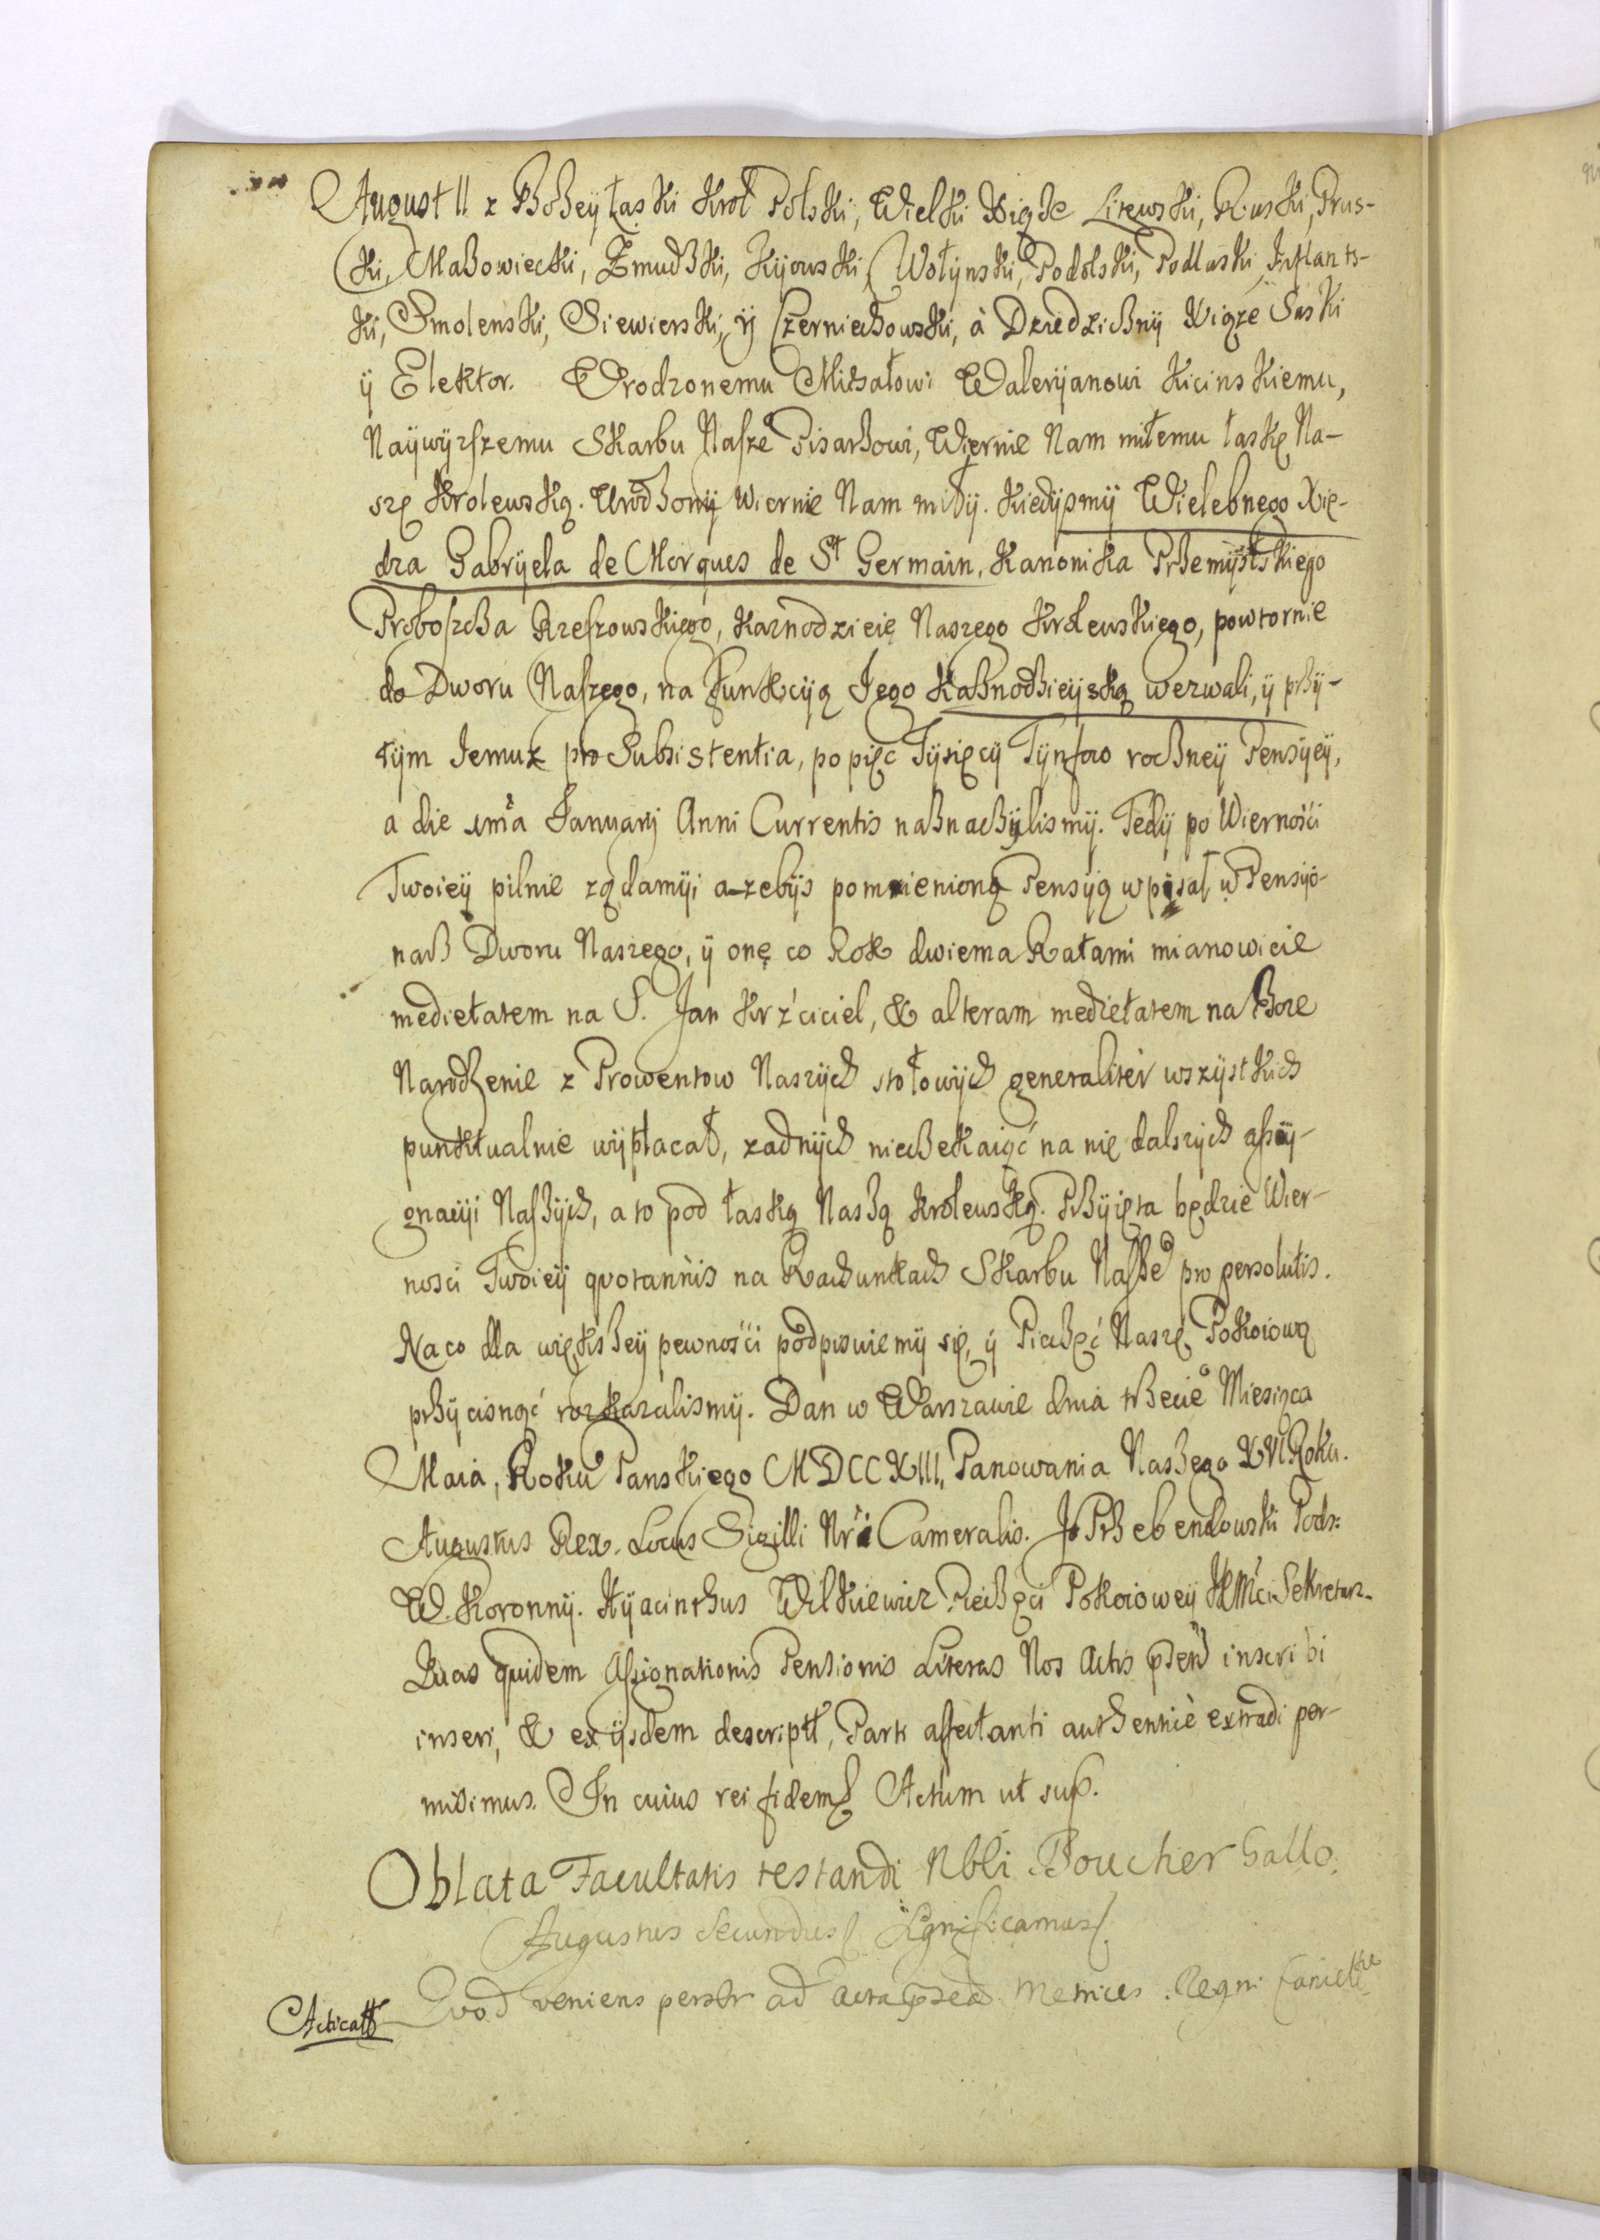 August II z Bożey łaski Krol Polski, Wielki Xiąże Litewski, Ruski, Prus-
ki, Mazowiecki, Żmudzki, Kijowski, Wołÿnski, Podolski, Podlaski, Inflants-
ki, Smolenski, Siewierski, ÿ Czerniechowski, à Dziedzicznÿ Xiąze Saski
ÿ Elektor. Urodzonemu Michałowi Walerÿanowi Kicinskiemu,
Naÿwÿzszemu Skarbu Nasze° Pisarzowi, Wiernie Nam miłemu łaskę Na-
szę Krolewską. Urodzonÿ Wiernie Nam miłÿ. Kiedÿsmÿ Wielebnego Xię-
dza Gabrÿela de Morques de St Germain, Kanonika Przemÿslskiego
Proboszcza Rzeszowskiego, Kaznodzieię Naszego Krolewskiego, powtornie
do Dworu Naszego, na Funkcÿą Jego Kaznodzieÿską wezwali, ÿ przÿ-
tÿm Jemuz pro Subsistentia, po pięc Tÿsięcÿ Tÿnfow rocznëÿ Pensÿeÿ,
a die 1ma Januarÿ Anni Currentis naznaczÿlismÿ. Tedÿ po Wiernosći
Twoieÿ pilnie ządamÿ i azebÿs pomienioną Pensÿą wpisał w Pensÿo-
narz Dworu Naszego, ÿ onę co Rok dwiema Ratami mianowicie
medietatem na S. Jan Krzćiciel, & alteram medietatem na Boze
Narodzenie z Prowentow Naszÿch stołowÿch generaliter wszÿstkich
punktualnie wÿpłacał, zadnÿch nieczekaiąć na nię dalszÿch assÿ-
gnacÿi Naszÿch, a to pod łaską Naszą Krolewską. Przÿięta będzie Wier-
nosci Twoieÿ quotannis na Rachunkach Skarbu Nasze° pro persolutis.
Na co dla większeÿ pewnosći podpisuiemÿ się, ÿ Pieczęć Naszę Pokoiową
przÿcisnąć rozkazalismÿ. Dan w Warszawie dnia trzecie° Miesiąca
Maia, Roku Panskiego MDCCXIII, Panowania Naszego XVI Roku.
Augustus Rex. Locus Sigilli Nri Cameralis. J Przebendowski Pods:
W. Koronnÿ. Hÿacinthus Wilkiewicz Pieczęci Pokoioweÿ JKMći Sekretarz.
Quas quidem Assignationis Pensionis Literas Nos Actis inscribi
inseri, & exÿsdem descript, Parti affectanti authenticè extradi per-
misimus. In cuius rei fidem Actum ut sup.
Oblata Facultatis testandi Nbli Boucher Gallo.
Augustus Secundus Significamus
Acticatt Quod veniens persltr ad acta Metrices Regni